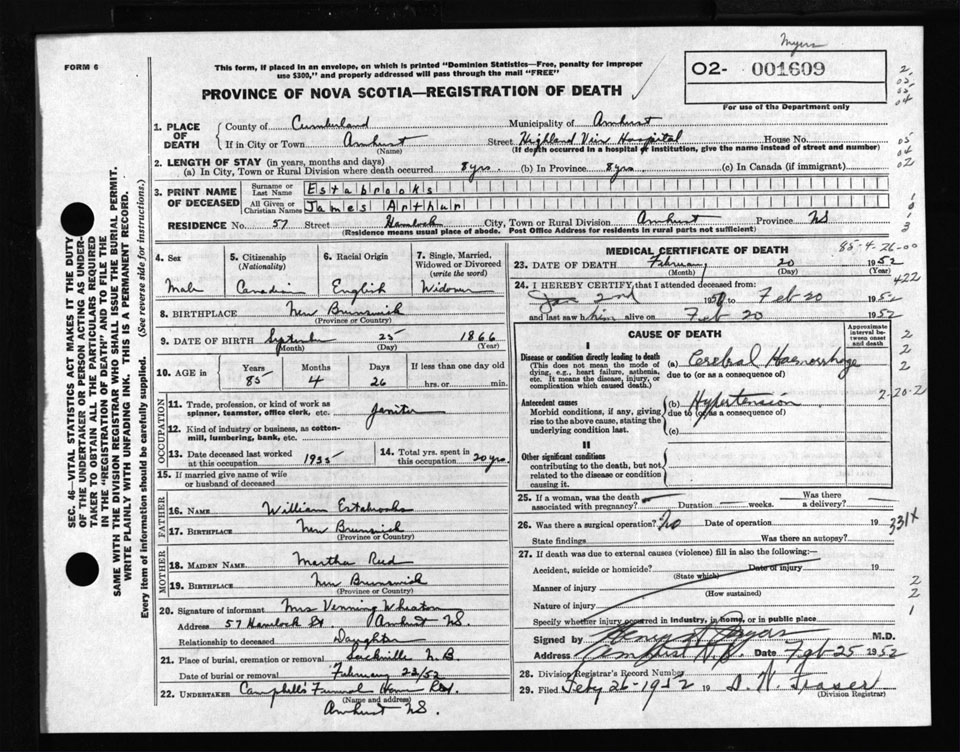 Myers
FORM 6
This form, if placed in an envelope, on which is printed "Dominion Statistics—Free, penalty for improper
use $300," and properly addressed will pass through the mail "FREE"
O2- 001609
PROVINCE OF NOVA SCOTIA—REGISTRATION OF DEATH
For use of the Department only
1. PLACE OF DEATH
County of Cumberland Municipality of Amherst
If in City or Town Amherst Street Highland View Hospital House No.
(Name) (If death occurred in a hospital or institution, give the name instead of street and number)
2. LENGTH OF STAY (in years, months and days)
(a) In City, Town or Rural Division where death occurred 8 yrs. (b) In Province 8 yrs. (c) In Canada (if immigrant)
3. PRINT NAME OF DECEASED
Surname or Last Name Estabrooks
All Given or Christian Names James Arthur
RESIDENCE No. 57 Street Hemlock City, Town or Rural Division Amherst Province NS
(Residence means usual place of abode. Post Office Address for residents in rural parts not sufficient)
4. Sex Male
5. Citizenship (Nationality) Canadian
6. Racial Origin English
7. Single, Married, Widowed or Divorced (write the word) Widower
8. BIRTHPLACE New Brunswick
(Province or Country)
9. DATE OF BIRTH September 25 1866
(Month) (Day) (Year)
10. AGE in Years Months Days If less than one day old
85 4 26 hrs. or min.
OCCUPATION
11. Trade, profession, or kind of work as spinner, teamster, office clerk, etc. Janitor
12. Kind of industry or business, as cotton-mill, lumbering, bank, etc.
13. Date deceased last worked at this occupation 1935
14. Total yrs. spent in this occupation 20 yrs.
15. If married give name of wife or husband of deceased
FATHER
16. NAME William Estabrooks
17. BIRTHPLACE New Brunswick
(Province or Country)
MOTHER
18. MAIDEN NAME Martha Reid
19. BIRTHPLACE New Brunswick
(Province or Country)
20. Signature of informant Mrs Venning Wheaton
Address 57 Hemlock St Amherst NS.
Relationship to deceased Daughter
21. Place of burial, cremation or removal Sackville N.B.
Date of burial or removal February 22/52
22. UNDERTAKER Campbell's Funeral Home Reg.
(Name and address)
Amherst NS.
MEDICAL CERTIFICATE OF DEATH
85-4-26-00
23. DATE OF DEATH February 20 1952
(Month) (Day) (Year)
422
24. I HEREBY CERTIFY, that I attended deceased from:
Jan 2nd to Feb 20 1952
and last saw him alive on Feb 20 1952
CAUSE OF DEATH
Approximate interval between onset and death
I
Disease or condition directly leading to death
(This does not mean the mode of dying, e.g., heart failure, asthenia, etc. It means the disease, injury, or complication which caused death.)
(a) Cerebral Haemorrhage
due to (or as a consequence of)
Antecedent causes
Morbid conditions, if any, giving rise to the above cause, stating the underlying condition last.
(b) Hypertension
due to (or as a consequence of)
(c)
2-20-2
II
Other significant conditions
contributing to the death, but not related to the disease or condition causing it.
25. If a woman, was the death associated with pregnancy? Duration weeks. Was there a delivery?
26. Was there surgical operation? No Date of operation 19
331X
State findings Was there an autopsy?
27. If death was due to external causes (violence) fill in also the following:—
Accident, suicide or homicide? Date of injury 19
(State which)
Manner of injury
(How sustained)
Nature of injury
Specify whether injury occurred in industry, in home, or in public place
Signed by M.D.
Address Amherst N.S. Date Feb 25 1952
28. Division Registrar's Record Number
29. Filed Feby 26-1952 19 D. W. Fraser
(Division Registrar)
SEC. 46—VITAL STATISTICS ACT MAKES IT THE DUTY
OF THE UNDERTAKER OR PERSON ACTING AS UNDER-
TAKER TO OBTAIN ALL THE PARTICULARS REQUIRED
IN THE "REGISTRATION OF DEATH" AND TO FILE THE
SAME WITH THE DIVISION REGISTRAR WHO SHALL ISSUE THE BURIAL PERMIT.
WRITE PLAINLY WITH UNFADING INK. THIS IS A PERMANENT RECORD.
Every item of information should be carefully supplied. (See reverse side for instructions.)